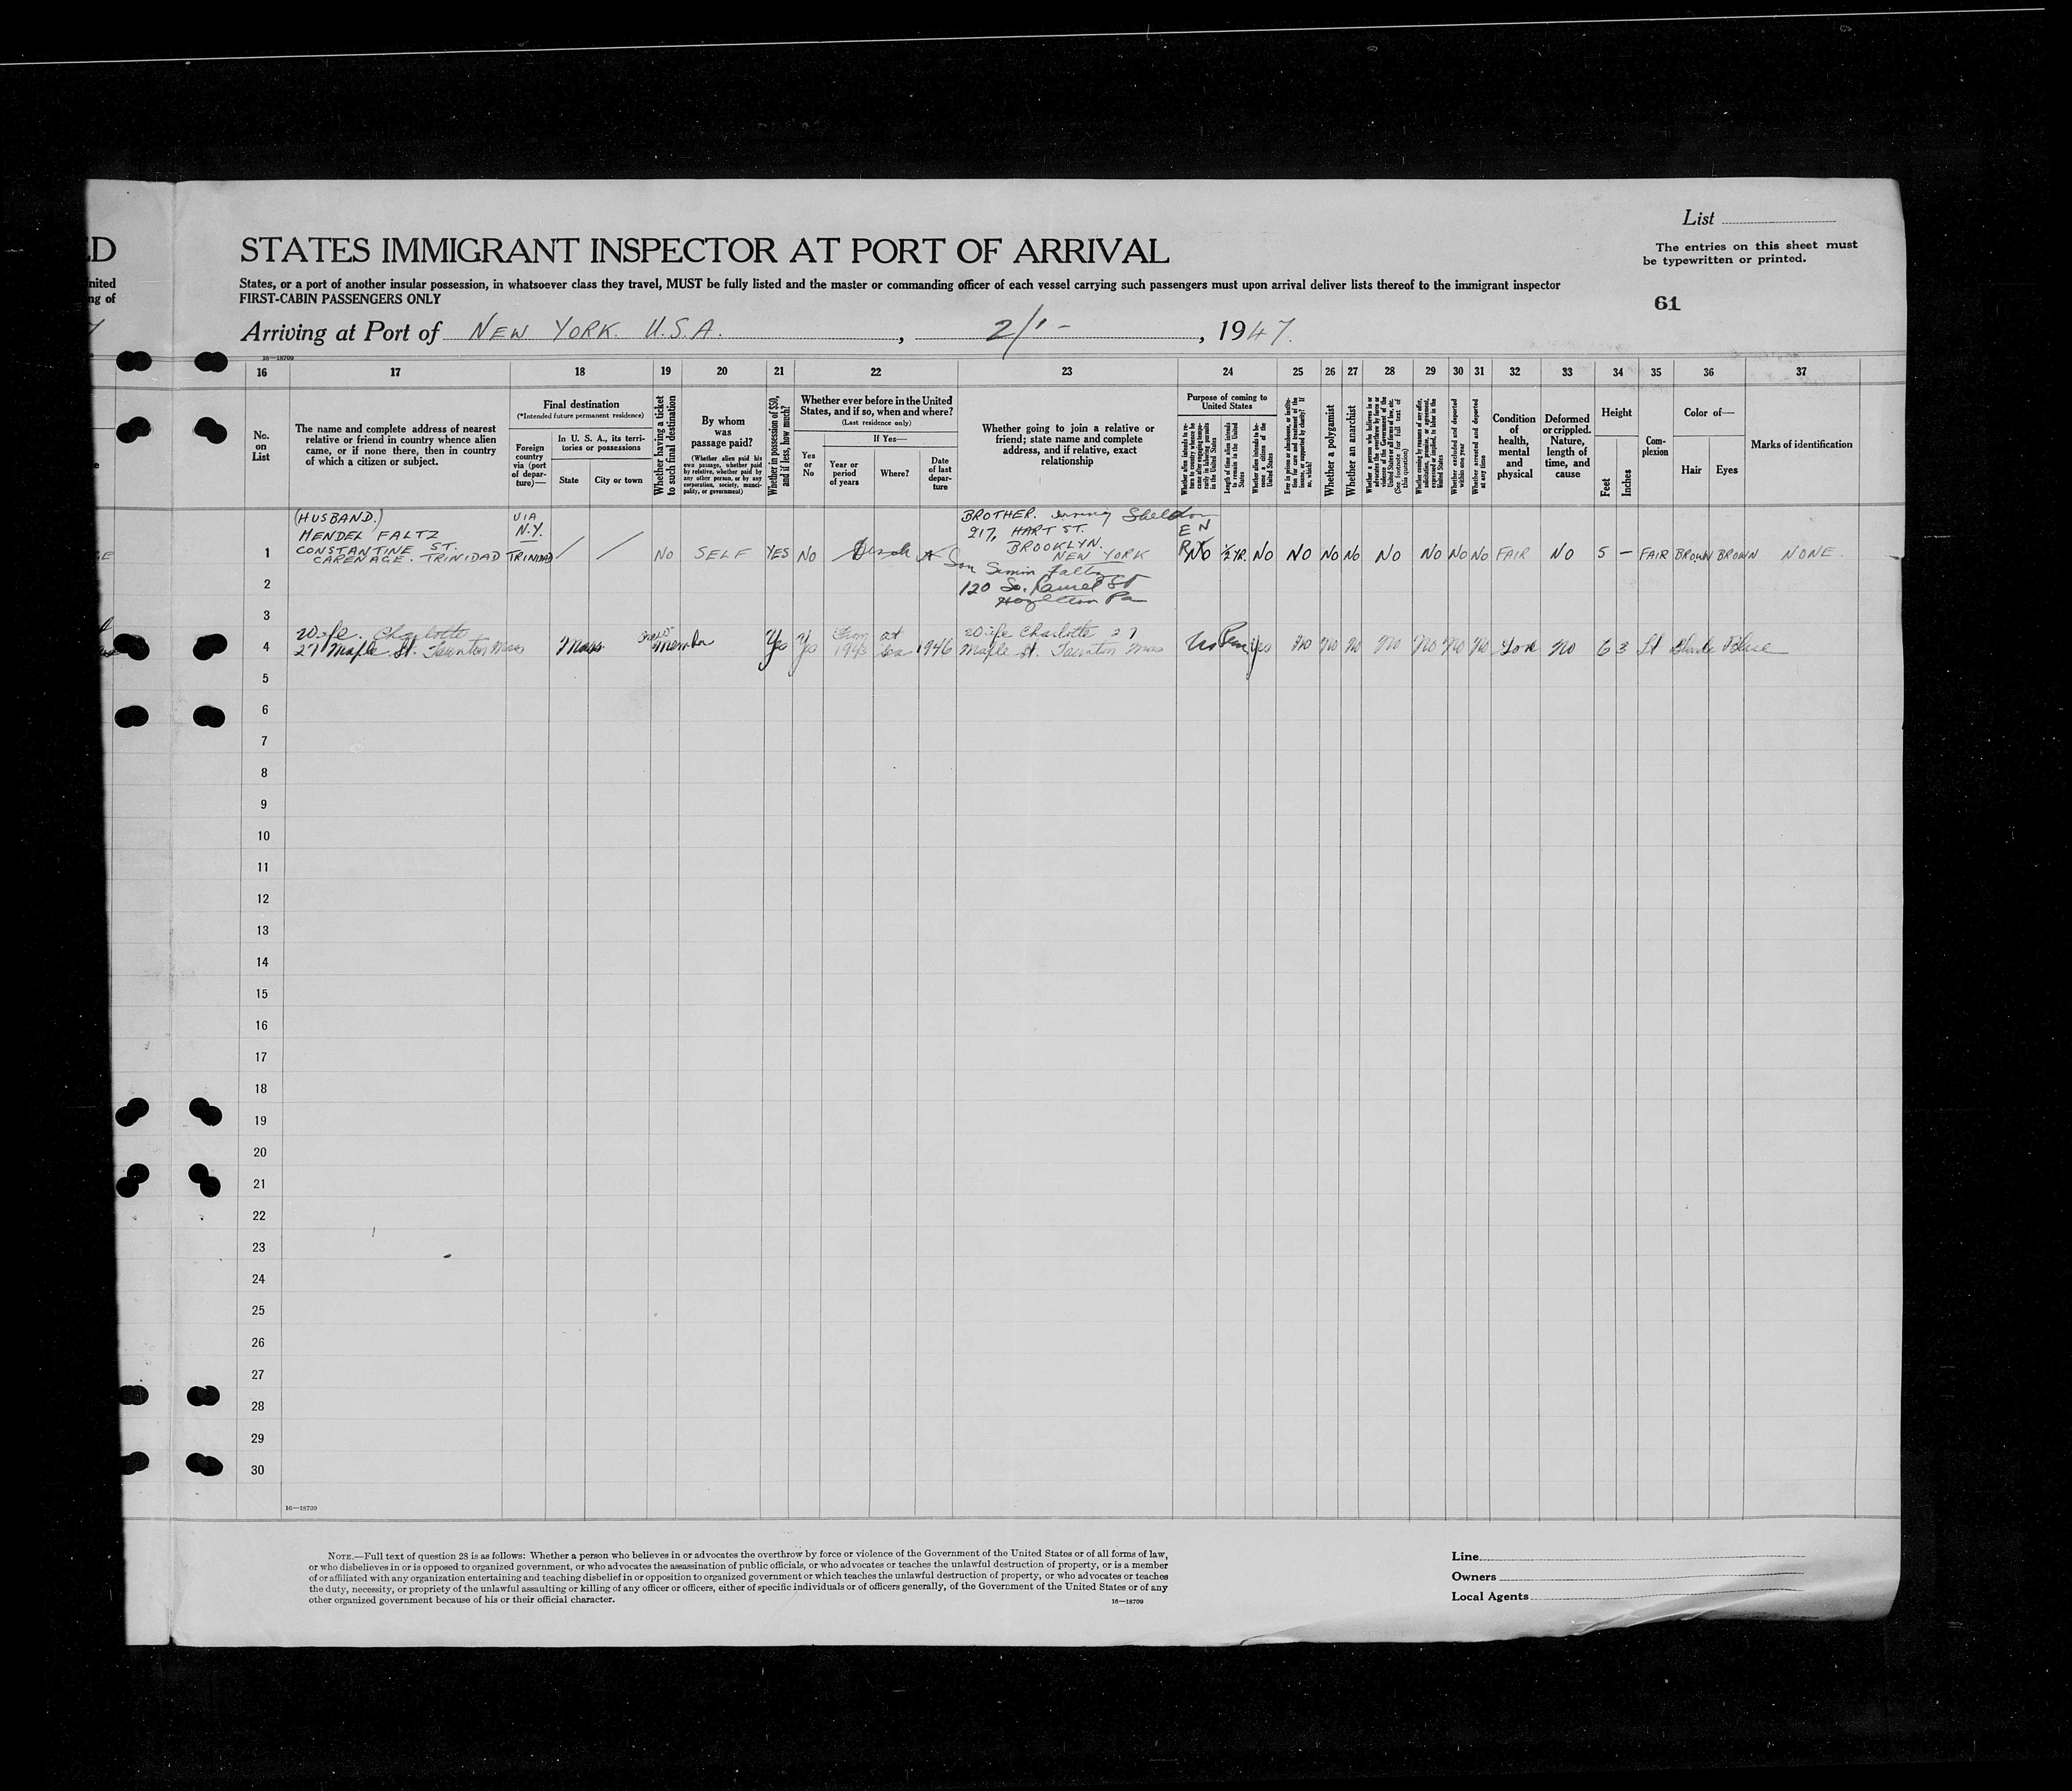 List
The entries on this sheet must
be typewritten or printed.
61
ED
STATES IMMIGRANT INSPECTOR AT PORT OF ARRIVAL
nited
ng of
States, or a port of another insular possession, in whatsoever class they travel, MUST be fully listed and the master or commanding officer of each vessel carrying such passengers must upon arrival deliver lists thereof to the immigrant inspector
FIRST-CABIN PASSENGERS ONLY
Arriving at Port of NEW YORK. U.S.A. , 2/1- , 1947.
16—18709
16 17 18 19 20 21 22 23 24 25 26 27 28 29 30 31 32 33 34 35 36 37
No.
on
List
The name and complete address of nearest
relative or friend in country whence alien
came, or if none there, then in country
of which a citizen or subject.
Final destination
(*Intended future permanent residence)
Foreign
country
via (port
of depar-
ture)—
In U. S. A., its terri-
tories or possessions
State
City or town
Whether having a ticket
to such final destination
By whom
was
passage paid?
(Whether alien paid his
own passage, whether paid
by relative, whether paid by
any other person, or by any
corporation, society, munici-
pality, or government)
Whether in possession of $50,
and if less, how much?
Whether ever before in the United
States, and if so, when and where?
(Last residence only)
Yes
or
No
If Yes—
Year or
period
of years
Where?
Date
of last
depar-
ture
Whether going to join a relative or
friend; state name and complete
address, and if relative, exact
relationship
Purpose of coming to
United States
Whether alien intends to re-
turn to country whence he
came after engaging tempo-
rarily in laboring pursuits
in the United States
Length of time alien intends
to remain in the United
States
Whether alien intends to be-
come a citizen of the
United States
Ever in prison or almshouse, or institu-
tion for care and treatment of the
insane, or supported by charity? If
so, which?
Whether a polygamist
Whether an anarchist
Whether a person who believes in or
advocates the overthrow by force or
violence of the Government of the
United States or all forms of law, etc.
(See footnote for full text of
this question)
Whether coming by reasons of any offer,
solicitation, promise, or agreement,
expressed or implied, to labor in the
United States
Whether excluded and deported
within one year
Whether arrested and deported
at any time
Condition
of
health,
mental
and
physical
Deformed
or crippled.
Nature,
length of
time, and
cause
Height
Feet
Inches
Com-
plexion
Color of—
Hair
Eyes
Marks of identification
1
(HUSBAND.)
MENDEL FALTZ
CONSTANTINE ST.
CARENAGE. TRINIDAD
VIA
N.Y.
TRINIDAD
/ / NO SELF YES NO
BROTHER. Irving Sheldon
217, HART ST.
BROOKLYN.
NEW YORK
Son Simon Faltz
120 So. Laurel St
Hazelton Pa
NO ½ YR. NO NO NO NO NO NO NO NO FAIR NO 5 — FAIR BROWN BROWN NONE.
2
3
4
Wife. Charlotte
27 Maple St. Taunton Mass
Mass
member
Yes Yes
1943
at
Sea
1946
Wife Charlotte 27
Maple St. Taunton Mass
No Perm Yes No No No No No No No Good No 6 3 Lt Blonde Blue
5
6
7
8
9
10
11
12
13
14
15
16
17
18
19
20
21
22
23
24
25
26
27
28
29
30
16—18709
NOTE.—Full text of question 28 is as follows: Whether a person who believes in or advocates the overthrow by force or violence of the Government of the United States or of all forms of law,
or who disbelieves in or is opposed to organized government, or who advocates the assassination of public officials, or who advocates or teaches the unlawful destruction of property, or is a member
of or affiliated with any organization entertaining and teaching disbelief in or opposition to organized government or which teaches the unlawful destruction of property, or who advocates or teaches
the duty, necessity, or propriety of the unlawful assaulting or killing of any officer or officers, either of specific individuals or of officers generally, of the Government of the United States or of any
other organized government because of his or their official character.
16—18709
Line
Owners
Local Agents